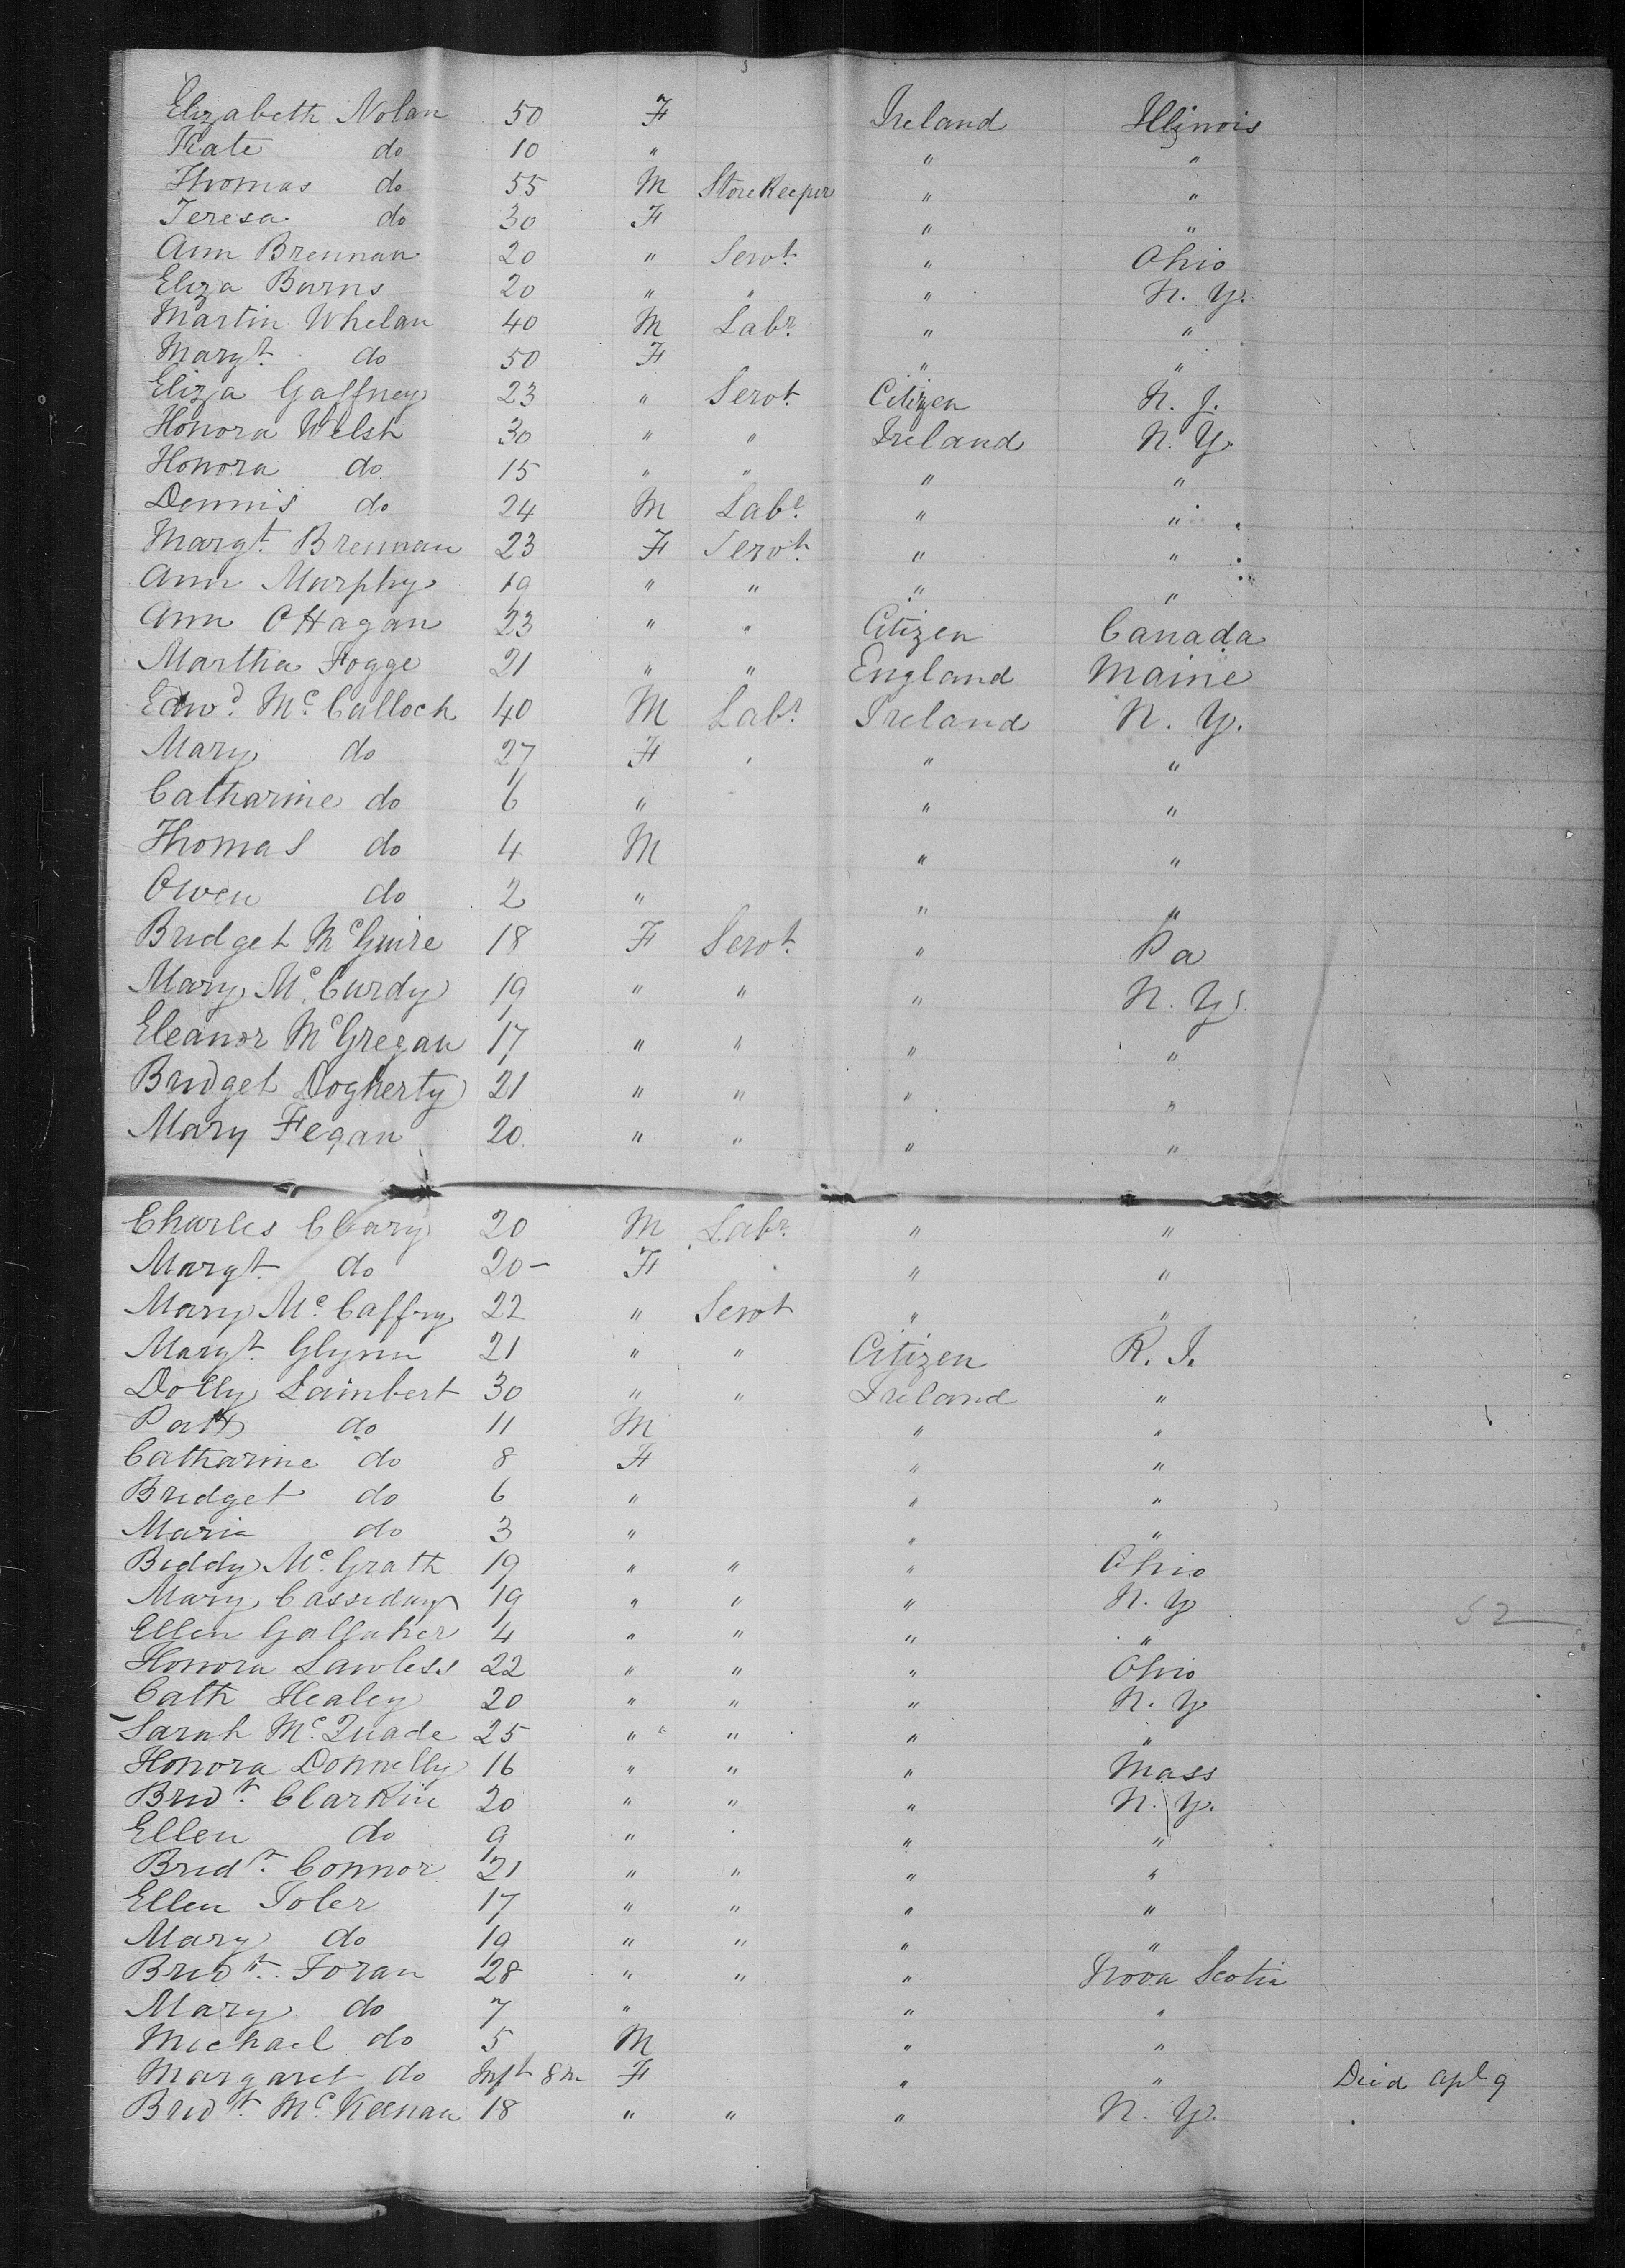 Elizabeth Nolan 50 F Ireland Illinois
Kate do 10 " " "
Thomas do 55 M StoreKeeper " "
Teresa do 30 F " "
Ann Brennan 20 " Servt. " Ohio
Eliza Burns 20 " " " N. Y.
Martin Whelan 40 M Labr. " "
Margt. do 50 F " "
Eliza Gaffney 23 " Servt. Citizen N. J.
Honora Welsh 30 " " Ireland N. Y.
Honora do 15 " " " "
Dennis do 24 M Labr. " "
Margt. Brennan 23 F Servt. " "
Ann Murphy 19 " " " "
Ann O Hagan 23 " " Citizen Canada
Martha Fogge 21 " " England Maine
Edwd. Mc. Culloch 40 M Labr. Ireland N. Y.
Mary do 27 F " " "
Catharine do 6 " " "
Thomas do 4 M " "
Owen do 2 " " "
Bridget McGuire 18 F Servt. " Pa
Mary Mc. Curdy 19 " " " N. Y.
Eleanor McGregan 17 " " " "
Bridget Dogherty 21 " " " "
Mary Fegan 20 " " " "
Charles Cleary 20 M Labr. " "
Margt. do 20 - F " "
Mary Mc. Caffry 22 " Servt " "
Margt. Glynn 21 " " Citizen R. I.
Dolly Lambert 30 " " Ireland "
Patt do 11 M " "
Catharine do 8 F " "
Bridget do 6 " " "
Maria do 3 " " "
Biddy Mc. Grath 19 " " " Ohio
Mary Cassiday 19 " " " N. Y
52
Ellen Gallaher 4 " " " "
Honora Lawless 22 " " " Ohio
Cath Healey 20 " " " N. Y
Sarah Mc. Quade 25 " " " "
Honora Donnelly 16 " " " Mass
Bridt. Clarkin 20 " " " N. Y.
Ellen do 9 " " "
Bridt. Connor 21 " " " "
Ellen Toler 17 " " " "
Mary do 19 " " " "
Bridt. Foran 28 " " " Nova Scotia
Mary do 7 " " "
Michael do 5 M " "
Margaret do Inft 8 m F " " Died Apl 9
Bridt. Mc. Keenan 18 " " " N. Y.